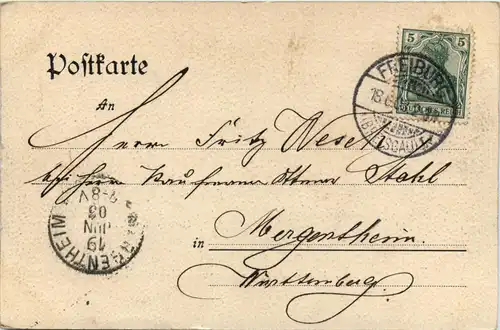 Postkarte
5 5
FREIBURG
18
(BREISGAU)
1
An
Herrn Fritz Wesel
bei Herrn Kaufmann Stahl
in Mergentheim
Württemberg.
MERGENTHEIM
19
JUN
03
7-8V